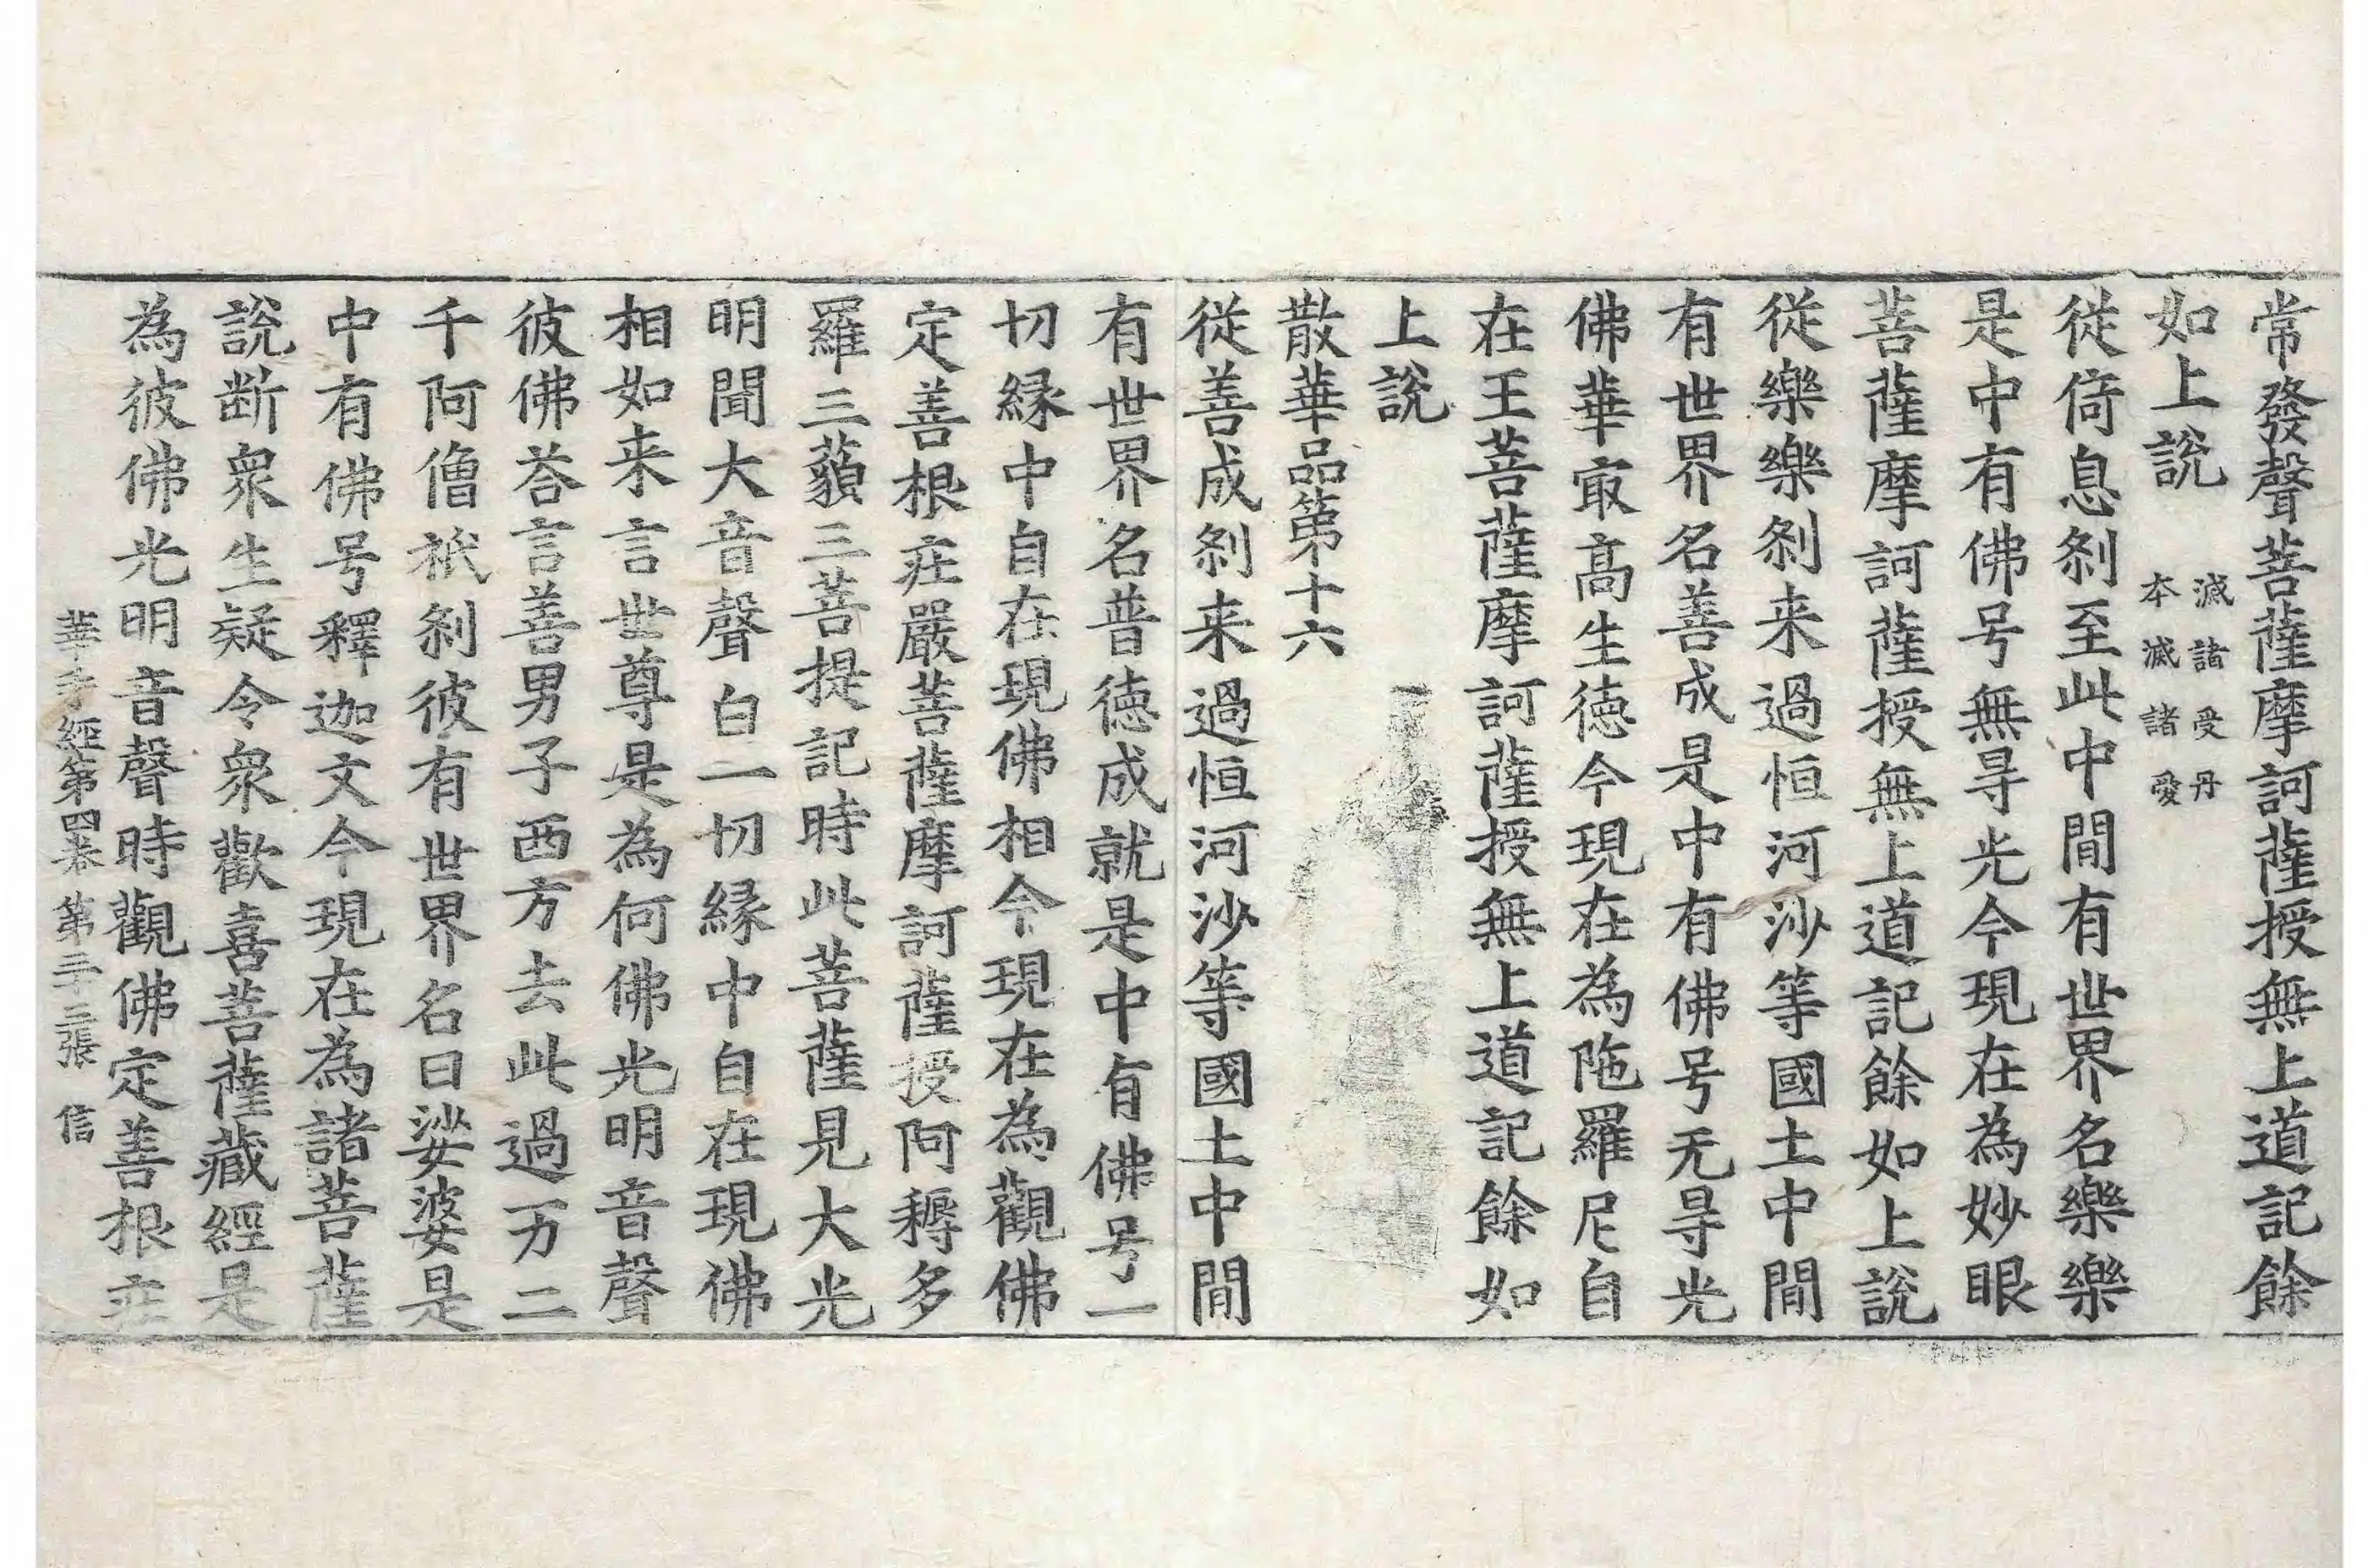 常發聲菩薩摩訶薩授無上道記餘
如上說
滅諸受丹
本滅諸愛
從倚息剎至此中間有世界名樂樂
是中有佛号無㝵光今現在為妙眼
菩薩摩訶薩授無上道記餘如上說
從樂樂剎来過恒河沙等國土中間
有世界名善成是中有佛号无㝵光
佛華㝡高生德今現在為陁羅尼自
在王菩薩摩訶薩授無上道記餘如
上說
散華品第十六
從善成剎来過恒河沙等國土中間
有世界名普德成就是中有佛号一
切緣中自在現佛相今現在為觀佛
定善根㽵嚴菩薩摩訶薩授阿耨多
羅三藐三菩提記時此菩薩見大光
明聞大音聲白一切緣中自在現佛
相如来言世尊是為何佛光明音聲
彼佛荅言善男子西方去此過万二
千阿僧祇剎彼有世界名曰娑婆是
中有佛号釋迦文今現在為諸菩薩
說断衆生疑令衆歡喜菩薩藏經是
為彼佛光明音聲時觀佛定善根㽵
華手經第四卷 第三十三張 信